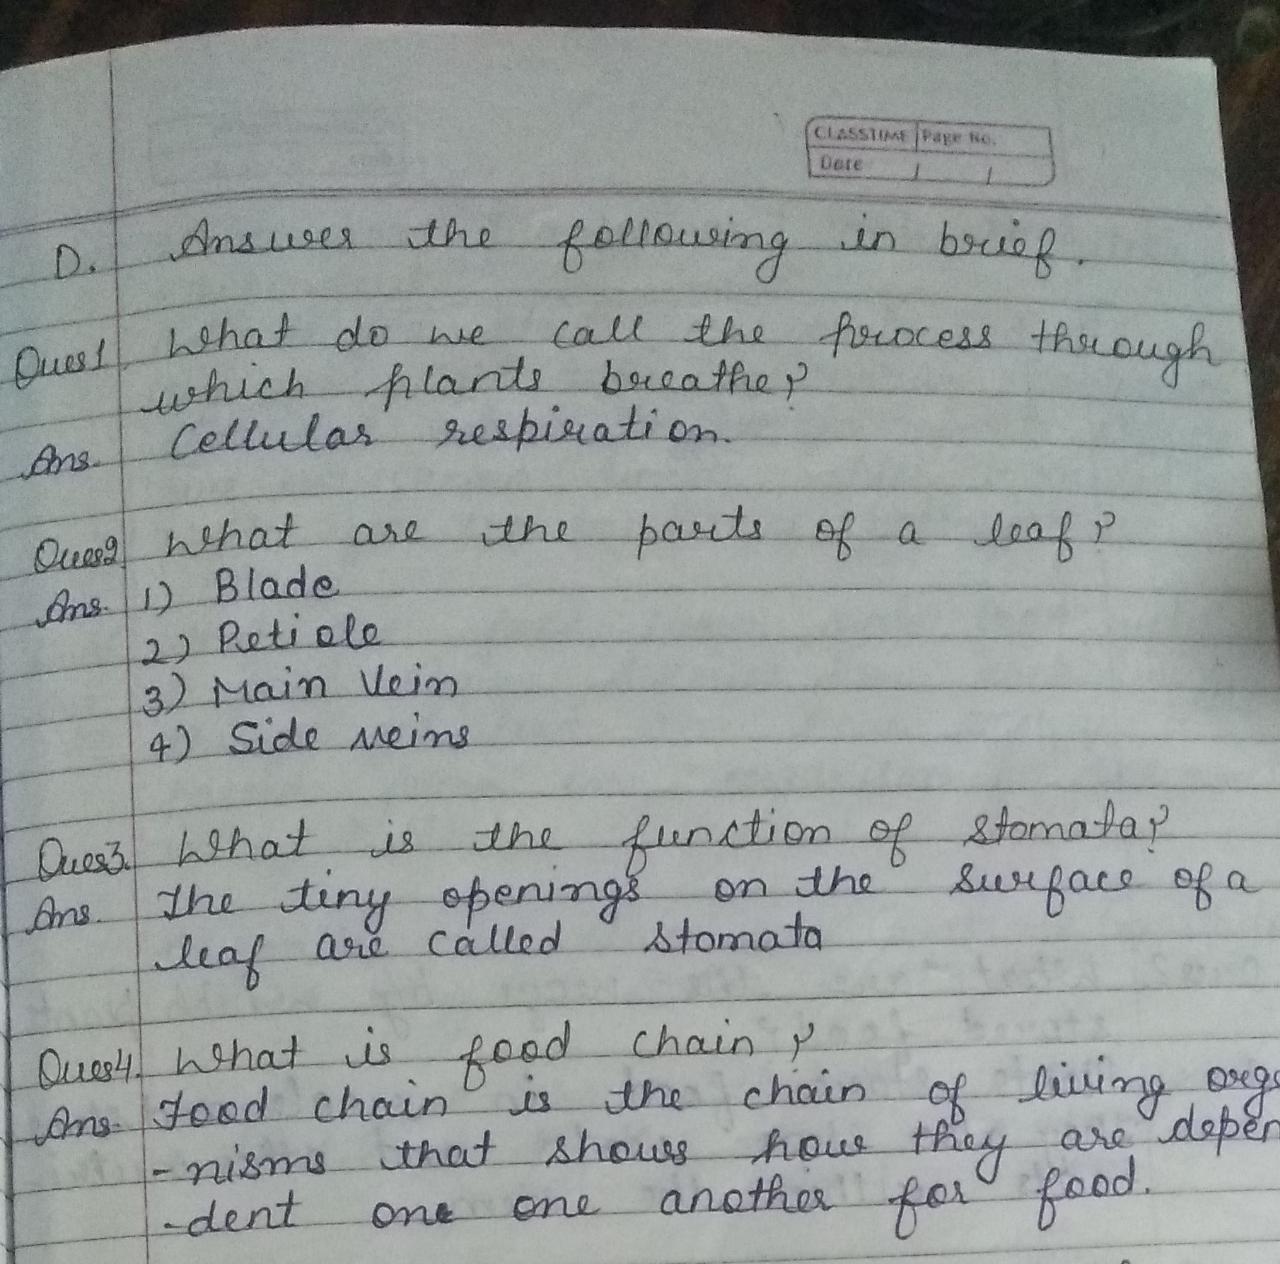 CLASSTIME Page No.
Date / /
D. Answer the following in brief.
Ques1 What do we call the process through
which plants breathe?
Ans. Cellular respiration.
Ques2 What are the parts of a leaf?
Ans. 1) Blade
2) Petiole
3) Main Vein
4) Side veins
Ques3. What is the function of stomata?
Ans. The tiny openings on the surface of a
leaf are called stomata
Ques4. What is food chain?
Ans. Food chain is the chain of living orga
-nisms that shows how they are depen
-dent one one another for food.